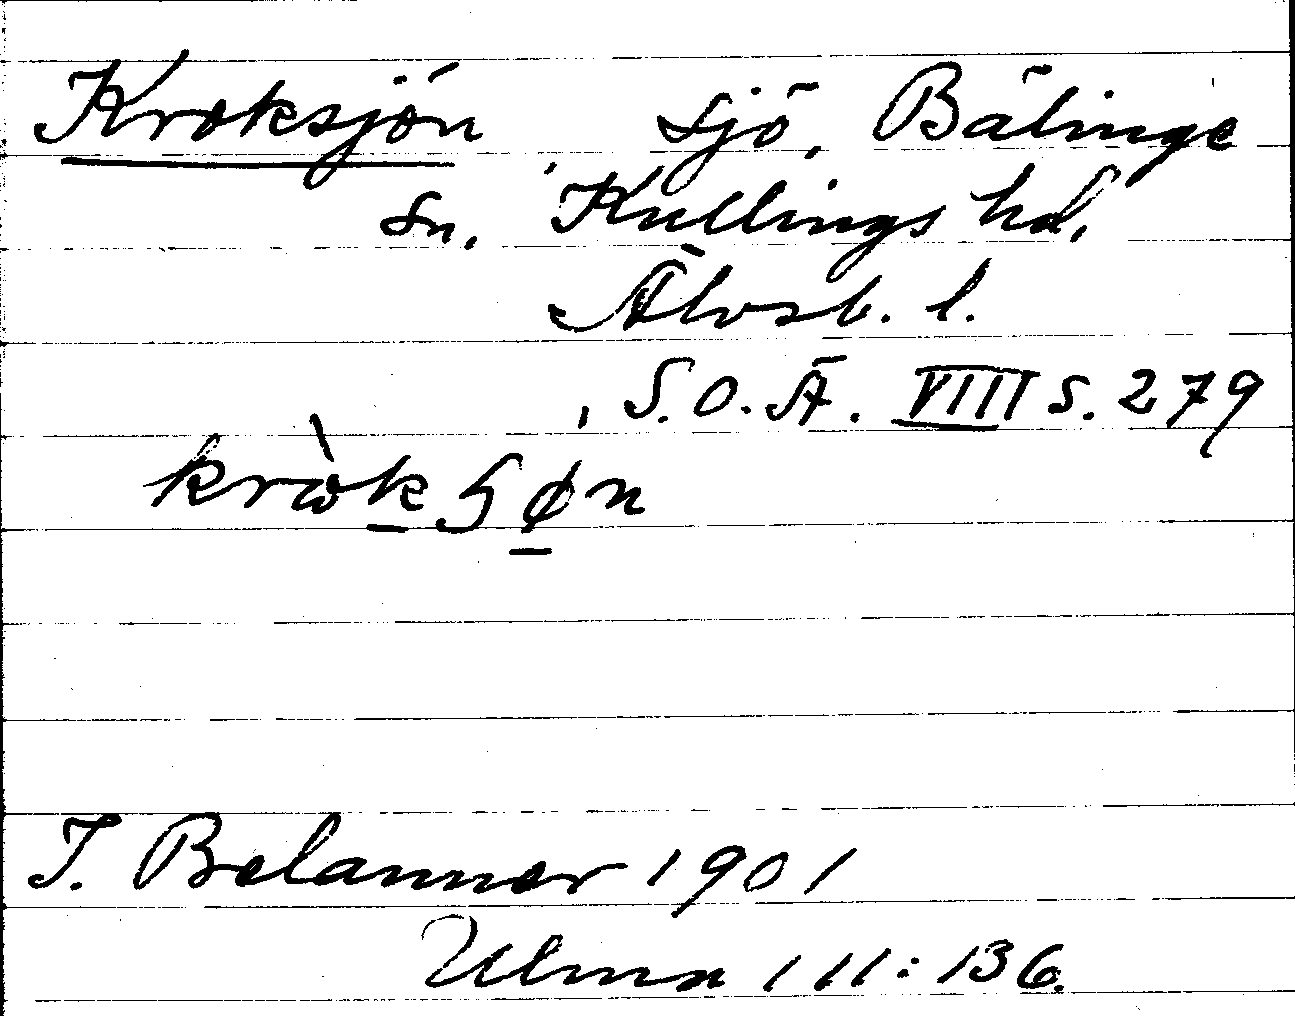 Kroksjön sjö, Bälinge
sn, Kullings hd,
Älvsb. l.
S.O.Ä. VIII s. 279
T. Belanner 1901
Ulma 111:136.